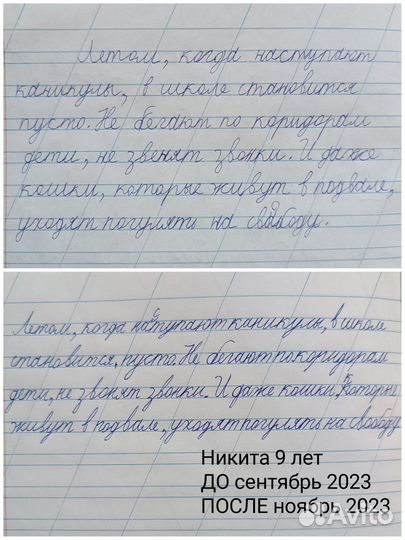 Летом, когда наступают
каникулы, в школе становится
пусто. Не бегают по коридорам
дети, не звенят звонки. И даже
кошки, которые живут в подвале,
уходят погулять на свободу.
Летом, когда наступают каникулы, в школе
становится пусто. Не бегают по коридорам
дети, не звонят звонки. И даже кошки, которые
живут в подвале, уходят погулять на свободу
Никита 9 лет
ДО сентябрь 2023
ПОСЛЕ ноябрь 2023
Avito